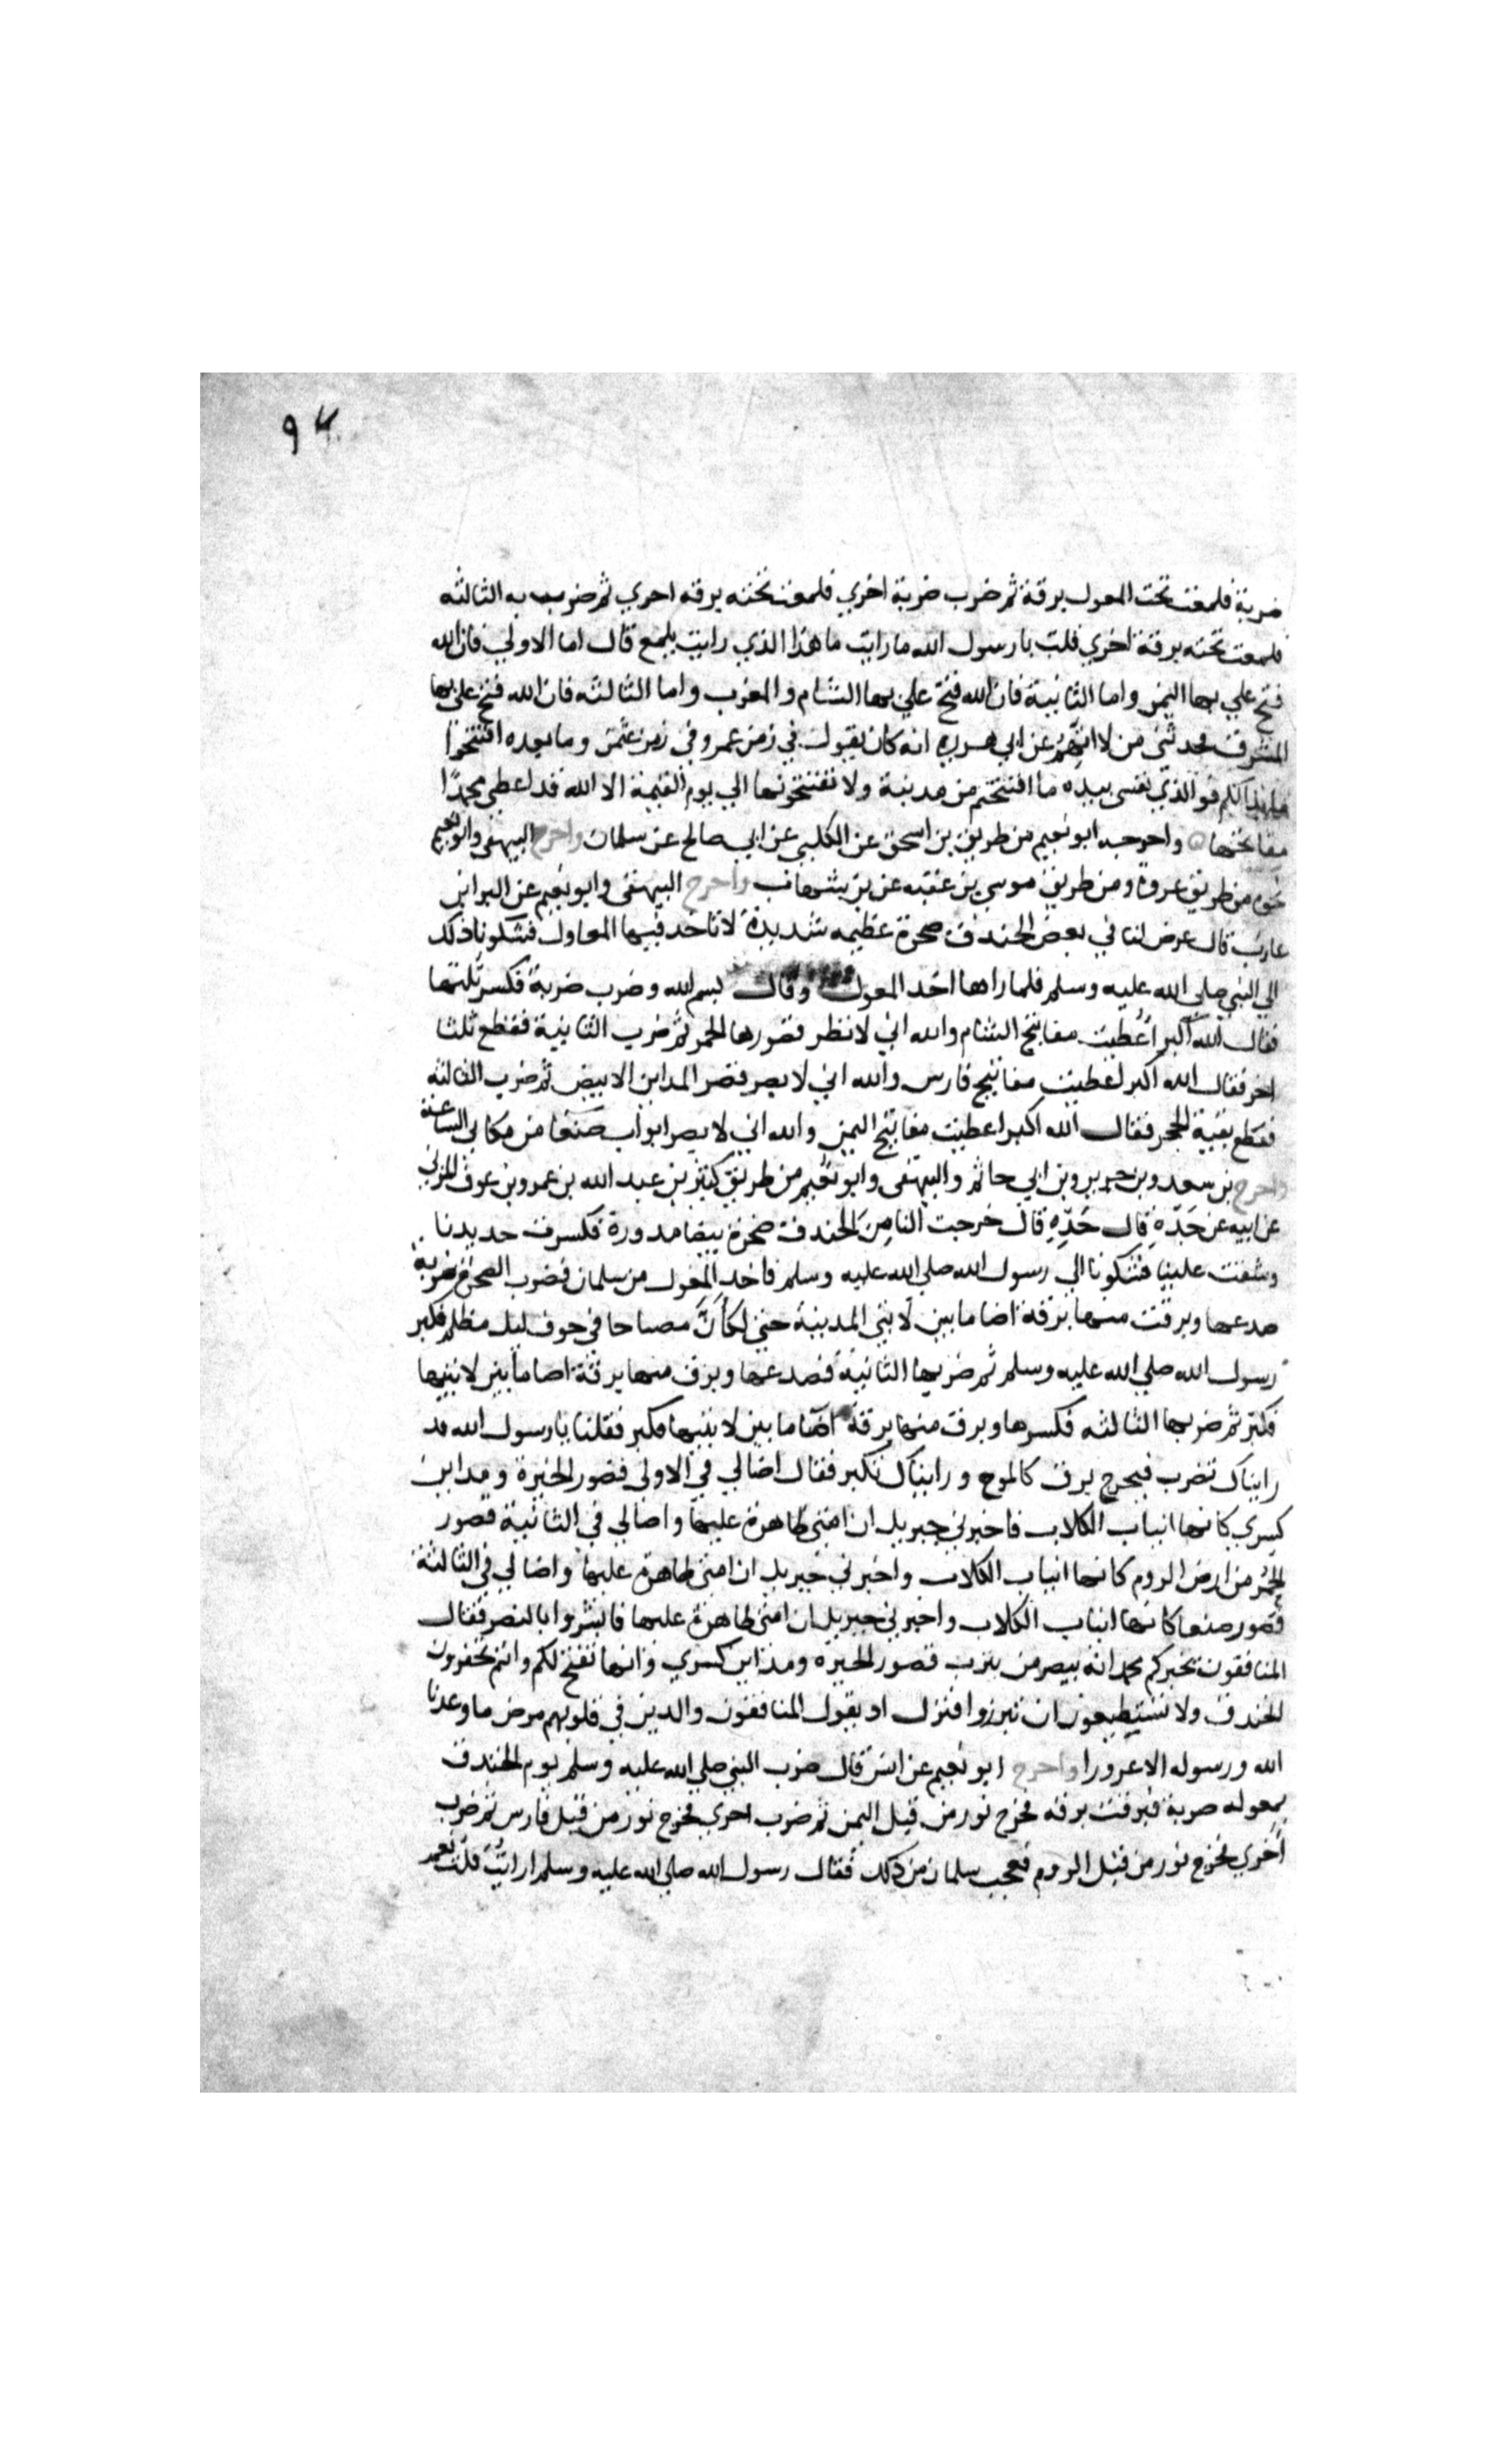 ٩٤
ضربة فلمعت تحت المعول برقة ثم ضرب ضربة اخري فلمعت تحته برقه اخري ثم ضرب به الثالثه
فلمعت تحته برقة اخري قلت يا رسول الله ما رايت ما هذا الذي رايت يلمع قال اما الاولي فان الله
فتح علي بها اليمن واما الثانية فان الله فتح علي بها الشام والمغرب واما الثالثه فان الله فتح علي بها
المشرق فحدثني من لا اتهم عن ابي هريره انه كان يقول في زمن عمر وفي زمن عثمن وما بعده افتتحوا
ما بدا لكم فو الذي نفسي بيده ما افتتحتم من مدينة ولا تفتتحونها الي يوم القيمة الا الله قد اعطي محمدا
مفاتحها واخرجه ابو نعيم من طريق بن اسحق عن الكلبي عن ابي صالح عن سلمان واخرج البيهقي وابو نعيم
نحوه من طريق عروة ومن طريق موسي بن عقبه عن بن شهاب واخرج البيهقي وابو نعيم عن البرا بن
عازب قال عرض لنا في بعض الخندق صخرة عظيمه شديدة لا تاخذ فيها المعاول فشكونا ذلك
الي النبي صلي الله عليه وسلم فلما راها اخذ المعول وقال بسم الله وضرب ضربة فكسر ثلثها
فقال الله اكبر اعطيت مفاتيح الشام والله اني لانظر قصورها الحمر ثم ضرب الثانية فقطع ثلثا
اخر فقال الله اكبر اعطيت مفاتيح فارس والله اني لابصر قصر المداين الابيض ثم ضرب الثالثه
فقطع بقية الحجر فقال الله اكبر اعطيت مفاتيح اليمن والله اني لابصر ابواب صنعا من مكاني الساعة
واخرج بن سعد وبن جرير وبن ابي حاتم والبيهقي وابو نعيم من طريق كثير بن عبد الله بن عمرو بن عوف المزني
عن ابيه عن جَدِّهِ قال جَدِّهِ قال خرجت لنا مِنَ الخندق صخرة بيضا مدورة فكسرت حديدنا
وشقت علينا فشكونا الي رسول الله صلي الله عليه وسلم فاخذ المعول من سلمان فضرب الصخرة ضربة
صدعها وبرقت منها برقة اضا ما بين لابتي المدينة حتي لكأنَّ مصباحا في جوف ليل مظلم فكبر
رسول الله صلي الله عليه وسلم ثم ضربها الثانية فصدعها وبرق منها برقة اضا ما بين لابتيها
فكبر ثم ضربها الثالثه فكسرها وبرق منها برقة اضا ما بين لابتيها فكبر فقلنا يا رسول الله قد
رايناك تضرب فيخرج برق كالموج ورايناك تكبر فقال اضا لي في الاولي قصور الحيرة ومداين
كسري كانها انياب الكلاب فاخبرني جبريل ان امتي ظاهرة عليها واضا لي في الثانية قصور
الحُمُر من ارض الروم كانها انياب الكلاب واخبرني جبريل ان امتي ظاهرة عليها واضا لي في الثالثة
قصور صنعا كانها انياب الكلاب واخبرني جبريل ان امتي ظاهرة عليها فابشروا بالنصر فقال
المنافقون يخبركم محمد انه يبصر من يثرب قصور الحيره ومداين كسري وانها تفتح لكم وانتم تحفرون
الخندق ولا تستطيعون ان تبرزوا فنزل اذ يقول المنافقون والذين في قلوبهم مرض ما وعدنا
الله ورسوله الا غرورا واخرج ابو نعيم عن انس قال ضرب النبي صلي الله عليه وسلم يوم الخندق
بمعوله ضربة فبرقت برقه فخرج نور من قبل اليمن ثم ضرب اخري فخرج نور من قبل فارس ثم ضرب
اخري فخرج نور من قبل الروم فعجب سلمان من ذلك فقال رسول الله صلي الله عليه وسلم ارايت قلت نعم